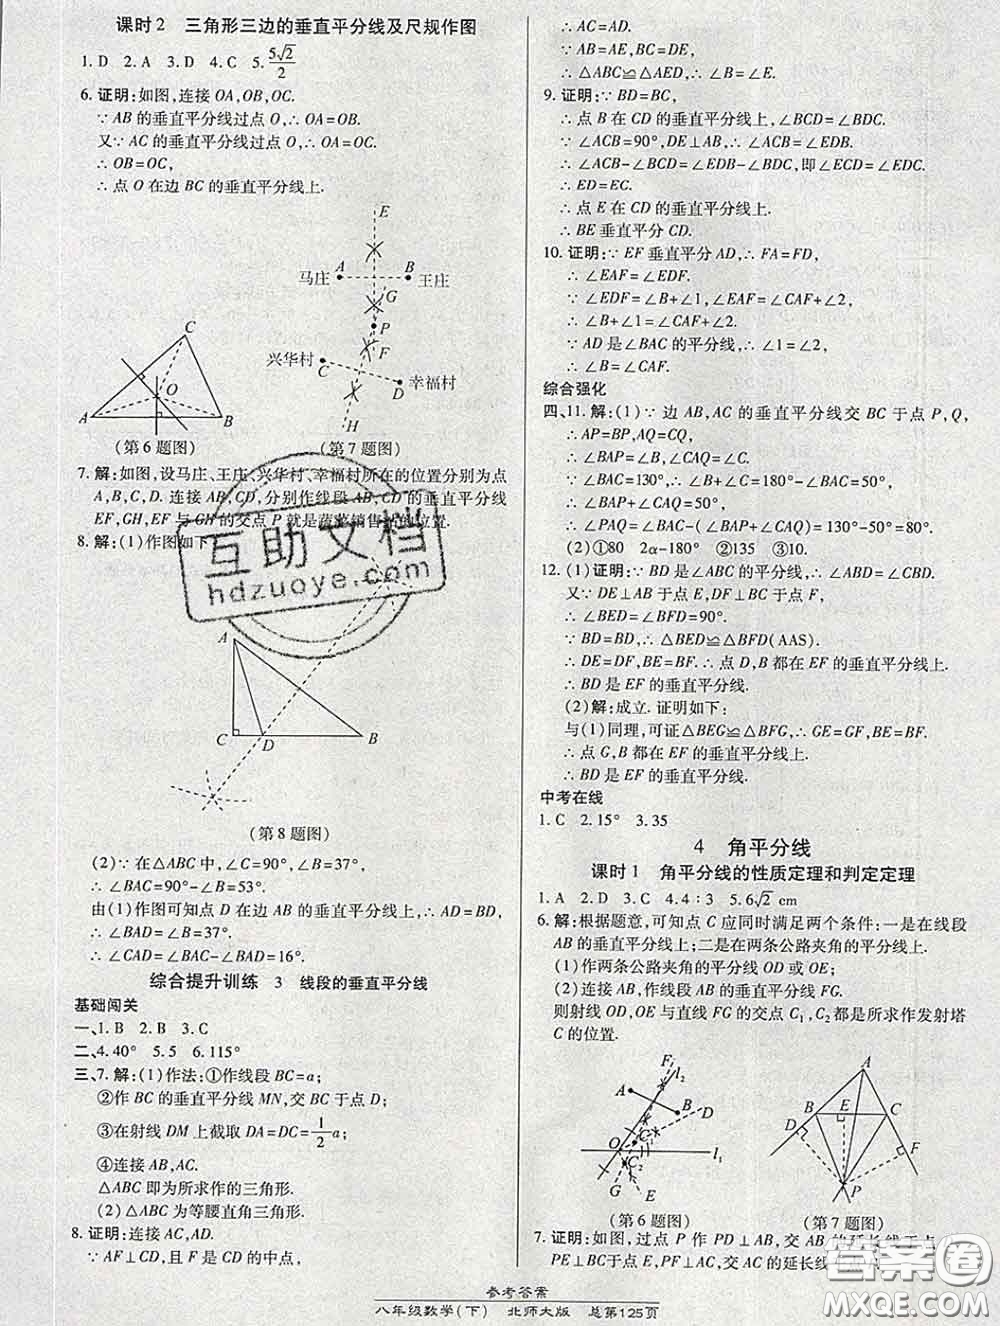 课时2 三角形三边的垂直平分线及尺规作图
1. D 2. A 3. D 4. C 5. 5√2/2
6. 证明:如图,连接 OA,OB,OC.
∵ AB 的垂直平分线过点 O,∴ OA=OB.
又∵ AC 的垂直平分线过点 O,∴ OA=OC,
∴ OB=OC,
∴ 点 O 在边 BC 的垂直平分线上.
E
马庄 A B 王庄
G
P
兴华村 C F
D 幸福村
H
C
O
A B
(第6题图) (第7题图)
7. 解:如图,设马庄、王庄、兴华村、幸福村所在的位置分别为点
A,B,C,D. 连接 AB,CD,分别作线段 AB,CD 的垂直平分线
EF,GH,EF 与 GH 的交点 P 就是蔬菜销售站的位置.
8. 解:(1)作图如下
互助文档
hdzuoye.com
A
C D B
(第8题图)
(2)∵ 在△ABC 中,∠C=90°,∠B=37°,
∴ ∠BAC=90°-∠B=53°.
由(1)作图可知点 D 在边 AB 的垂直平分线上,∴ AD=BD,
∴ ∠BAD=∠B=37°.
∴ ∠CAD=∠BAC-∠BAD=16°.
综合提升训练 3 线段的垂直平分线
基础闯关
一、1. B 2. B 3. C
二、4. 40° 5. 5 6. 115°
三、7. 解:(1)作法:①作线段 BC=a;
②作 BC 的垂直平分线 MN,交 BC 于点 D;
③在射线 DM 上截取 DA=DC=1/2a;
④连接 AB,AC.
△ABC 即为所求作的三角形.
(2)△ABC 为等腰直角三角形.
8. 证明:连接 AC,AD.
∵ AF⊥CD,且 F 是 CD 的中点,
∴ AC=AD.
∵ AB=AE,BC=DE,
∴ △ABC≌△AED,∴ ∠B=∠E.
9. 证明:∵ BD=BC,
∴ 点 B 在 CD 的垂直平分线上,∠BCD=∠BDC.
∵ ∠ACB=90°,DE⊥AB,∴ ∠ACB=∠EDB.
∴ ∠ACB-∠BCD=∠EDB-∠BDC,即∠ECD=∠EDC.
∴ ED=EC.
∴ 点 E 在 CD 的垂直平分线上.
∴ BE 垂直平分 CD.
10. 证明:∵ EF 垂直平分 AD,∴ FA=FD,
∴ ∠EAF=∠EDF.
∵ ∠EDF=∠B+∠1,∠EAF=∠CAF+∠2,
∴ ∠B+∠1=∠CAF+∠2.
∵ AD 是∠BAC 的平分线,∴ ∠1=∠2,
∴ ∠B=∠CAF.
综合强化
四、11. 解:(1)∵ 边 AB,AC 的垂直平分线交 BC 于点 P,Q,
∴ AP=BP,AQ=CQ,
∴ ∠BAP=∠B,∠CAQ=∠C.
∵ ∠BAC=130°,∴ ∠B+∠C=180°-∠BAC=50°,
∴ ∠BAP+∠CAQ=50°,
∴ ∠PAQ=∠BAC-(∠BAP+∠CAQ)=130°-50°=80°.
(2)①80 2α-180° ②135 ③10.
12. (1)证明:∵ BD 是∠ABC 的平分线,∴ ∠ABD=∠CBD.
又∵ DE⊥AB 于点 E,DF⊥BC 于点 F,
∴ ∠BED=∠BFD=90°.
∵ BD=BD,∴ △BED≌△BFD(AAS).
∴ DE=DF,BE=BF. ∴ 点 D,B 都在 EF 的垂直平分线上.
∴ BD 是 EF 的垂直平分线.
(2)解:成立. 证明如下:
与(1)同理,可证△BEG≌△BFG,∴ GE=GF,BE=BF.
∴ 点 G,B 都在 EF 的垂直平分线上.
∴ BD 是 EF 的垂直平分线.
中考在线
1. C 2. 15° 3. 35
4 角平分线
课时1 角平分线的性质定理和判定定理
1. A 2. D 3. C 4. 4∶3 5. 6√2 cm
6. 解:根据题意,可知点 C 应同时满足两个条件:一是在线段
AB 的垂直平分线上;二是在两条公路夹角的平分线上.
(1)作两条公路夹角的平分线 OD 或 OE;
(2)作线段 AB 的垂直平分线 FG.
则射线 OD,OE 与直线 FG 的交点 C₁,C₂都是所求作发射塔
C 的位置.
F l₂
A B D
O C₁
C₂ l₁
G E
A
B E C
D F
P
(第6题图) (第7题图)
7. 证明:如图,过点 P 作 PD⊥AB,交 AB 的延长线于点
PE⊥BC于点 E,PF⊥AC,交 AC 的延长线
参考答案
八年级数学(下) 北师大版 总第125页
答案圈
MXQE.COM